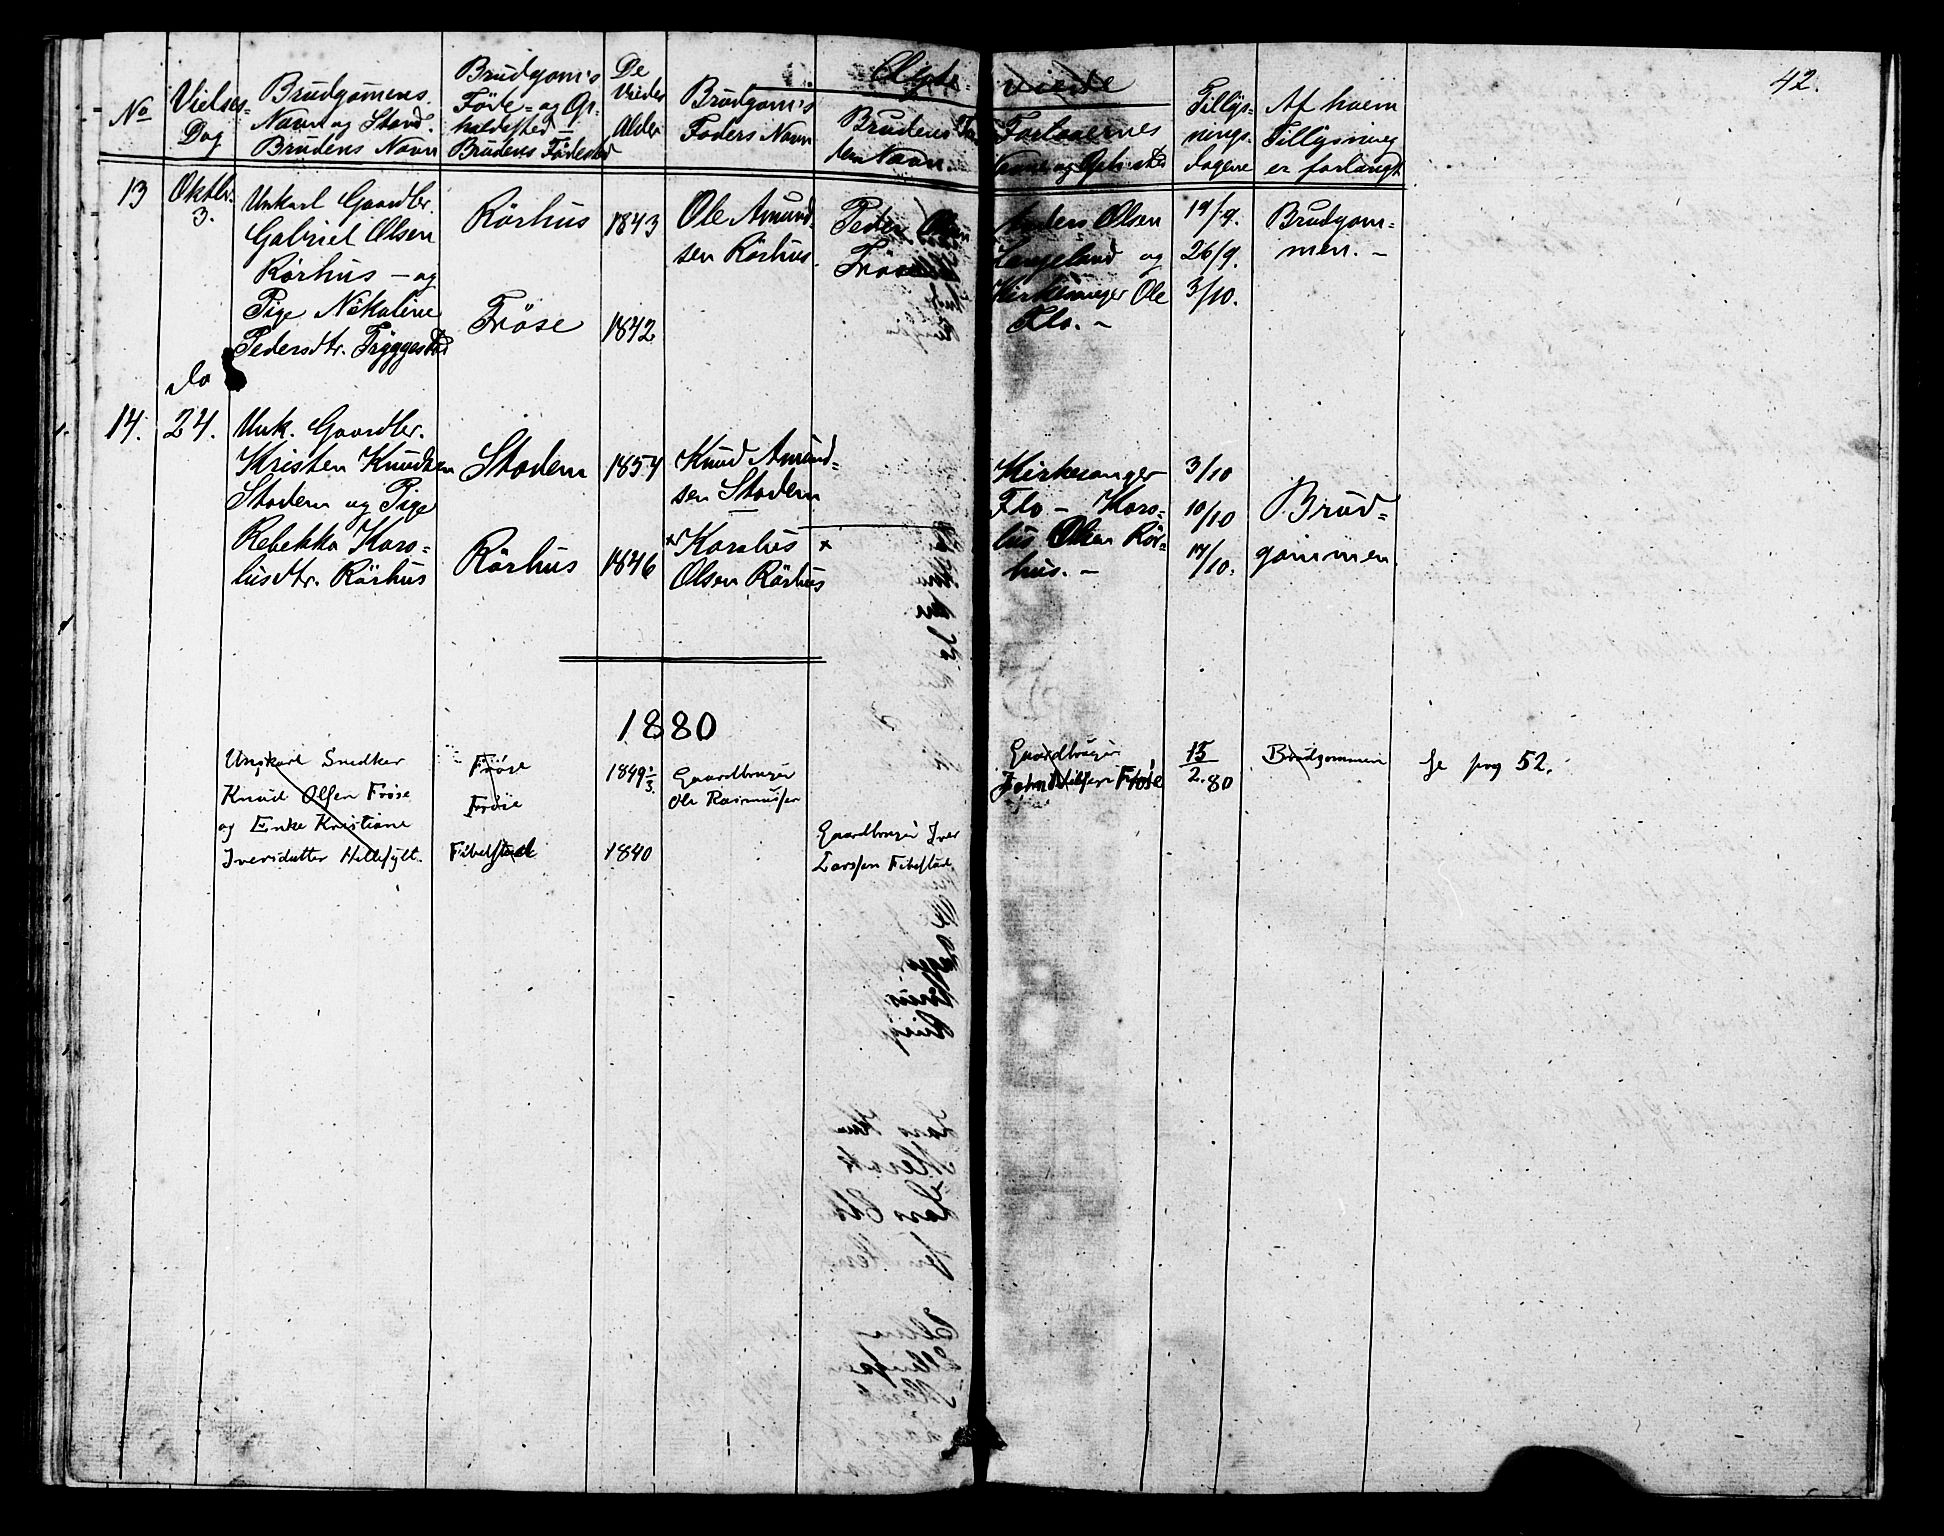 42.
Ægte- viede
No
Vielses-
Dag
Brudgomens
Navn og Stand.
Brudens Navn
Brudgom's
Føde- og Op-
holdssted -
Brudens Fødested
De
Viedes
Alder
Brudgom's
Faders Navn
Brudens Fa-
ders Navn.
Forlovernes
Navne og Opholdssted
Tillys-
nings-
dagene
Af hvem
Tillysning
er forlangt
13
Oktbr.
3.
Unkarl Gaardbr.
Gabriel Olsen
Rörhus - og
Pige Nikoline
Pedersdtr. Tryggestad
Rörhus
Fröse
1843
1842
Ole Amund-
sen Rörhus.
Peder Olsen
Fröse
Anders Olsen
Langeland og
Kirkesanger Ole
Flo. -
19/9.
26/9.
3/10.
Brudgom-
men. -
14.
do
24.
Unk. Gaardbr.
Kristen Knudsen
Stadem og Pige
Rebekka Karo-
lusdtr. Rörhus
Stadem
Rörhus
1854
1846
Knud Amund-
sen Stadem
x Karolus x
Olsen Rörhus
Kirkesanger
Flo - Karo-
lus Olsen Rör-
hus. -
3/10
10/10
17/10.
Brud-
gommen
1880
Ungkarl Snedker
Knud Olsen Frøse
og Enke Kristiane
Iversdatter Hellesylt.
Frøse
Frøse
Fibelstad
1849 1/3.
1840
Gaardbruger
Ole Rasmussen
Gaardbruger Iver
Larssen Fibelstad
Gaardbruger
John Nilsen Frøse
15/2.80
Brudgommen
Se pag 52.